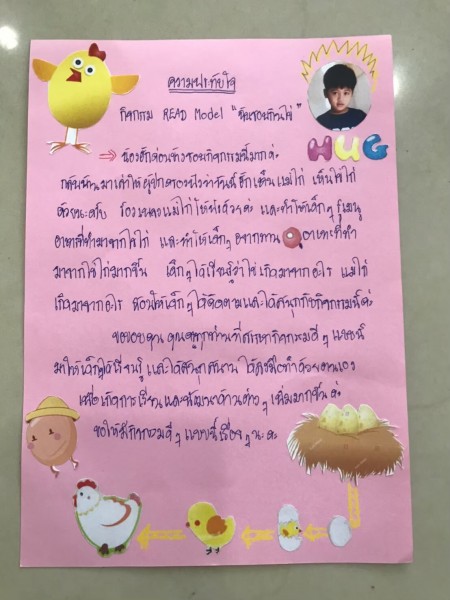 ความประทับใจ
กิจกรรม READ Model "ฉันชอบกินไข่"
HUG
น้องฮักค่อนข้างชอบกิจกรรมนี้มากค่ะ
กลับบ้านมาเล่าให้ผู้ปกครองฟังว่าวันนี้ฮักเห็นแม่ไก่ เห็นไข่ไก่
ด้วยนะครับ ร้องเพลงแม่ไก่ให้ฟังด้วยค่ะ และทำให้เด็กๆ รู้เมนู
อาหารที่ทำมาจากไข่ไก่ และทำให้เด็กๆ อยากทาน อาหารที่ทำ
มาจากไข่ไก่มากขึ้น เด็กๆ ได้เรียนรู้ว่าไข่เกิดมาจากอะไร แม่ไก่
เกิดมาจากอะไร สอนให้เด็กๆ ได้คิดตามและได้สนุกกับกิจกรรมนี้ค่ะ
ขอขอบคุณ คุณครูทุกท่านที่สรรหากิจกรรมดีๆ แบบนี้
มาให้เด็กๆ ได้เรียนรู้ และได้สนุกสนาน ได้ลงมือทำด้วยตนเอง
เพื่อเกิดการเรียน และพัฒนาด้านต่างๆ เพิ่มมากขึ้น ค่ะ
ขอให้มีกิจกรรมดีๆ แบบนี้เรื่อยๆ นะคะ